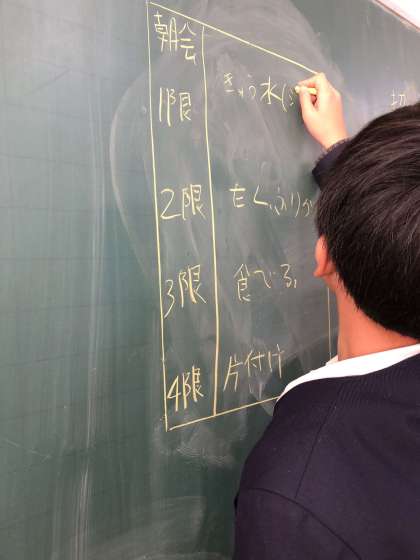 朝会
1限 きゅう水(
2限 もくふり
3限 食でる。
4限 片付け
切